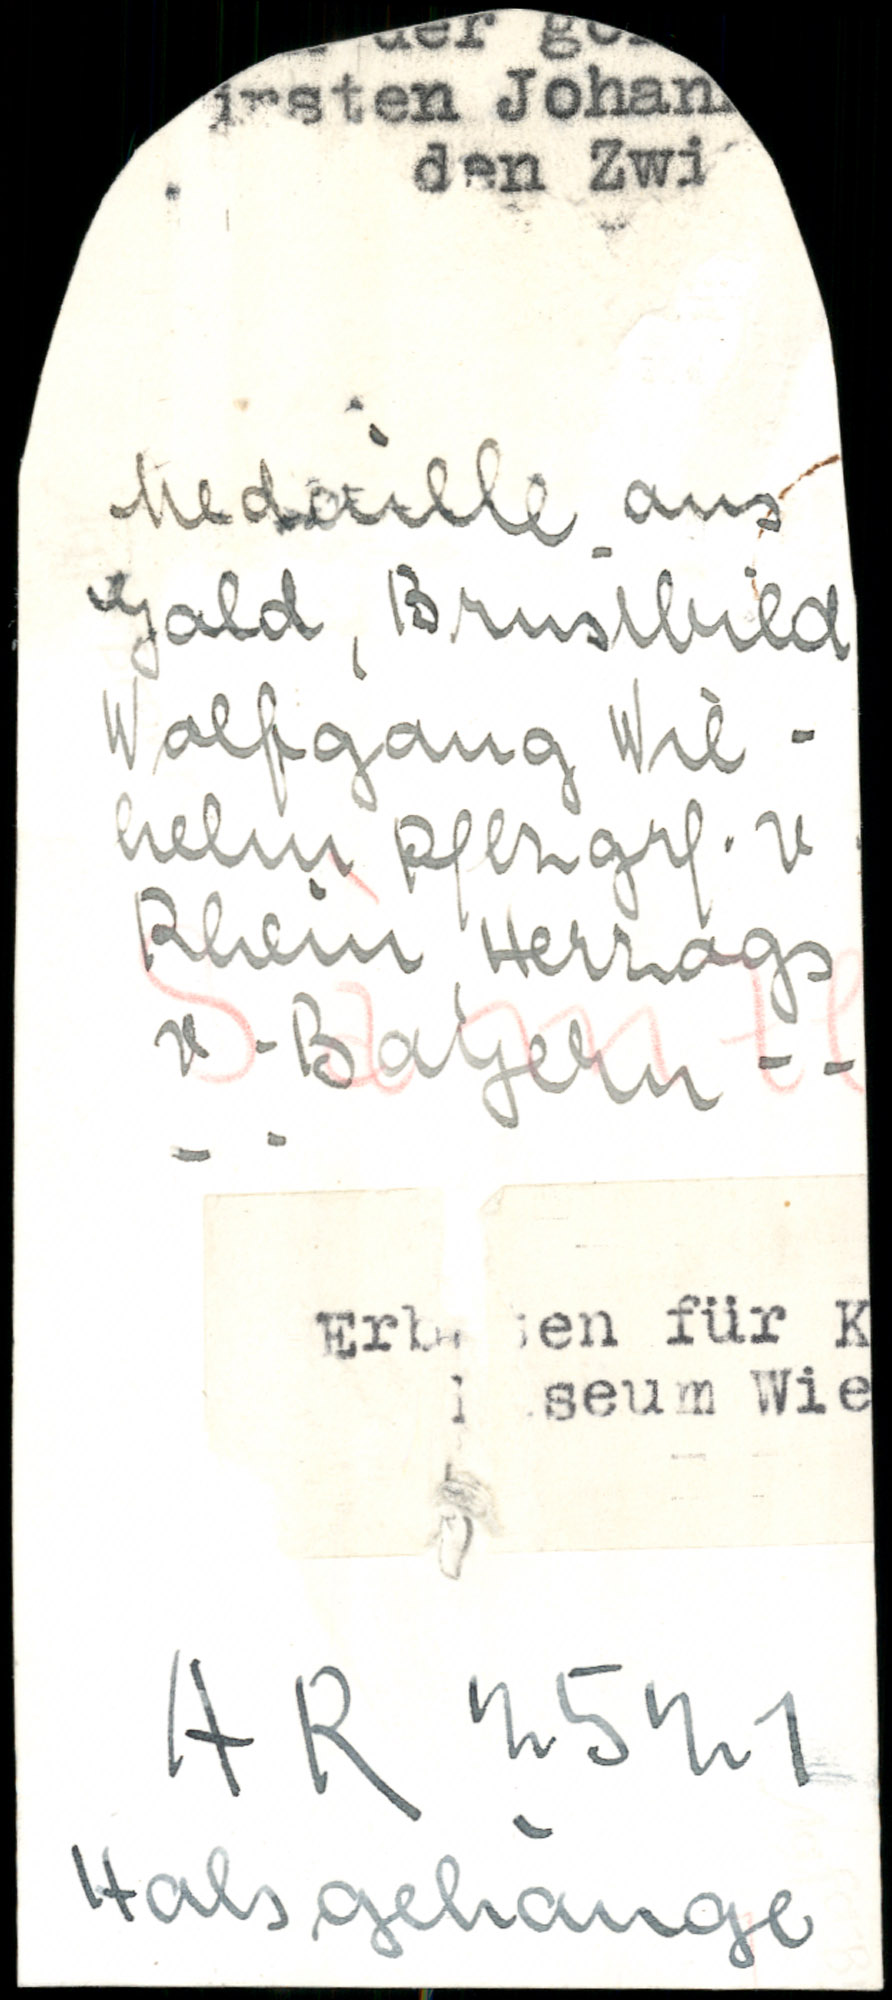 der gol
irsten Johan
den Zwi
Medaille aus
Gold, Brustbild
Wolfgang Wil-
helm Pflzgrf. v.
Rhein, Herzogs
v. Bayern --
--
für K
seum Wie
AR 2521
Halsgehänge